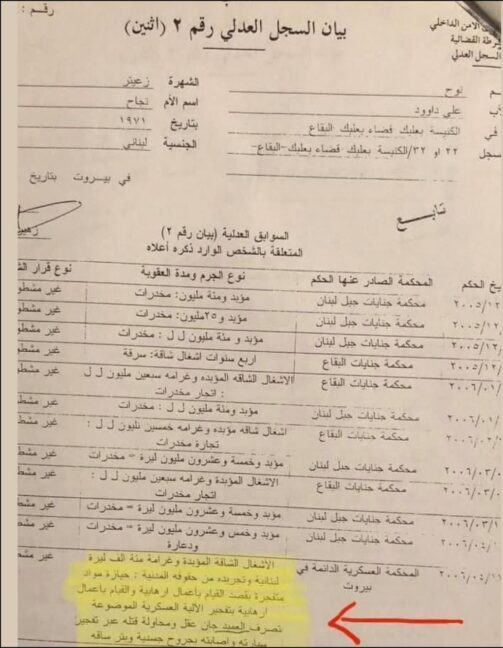 رقم :
الامن الداخلي
شرطة القضائية
السجل العدلي
بيان السجل العدلي رقم ٢ (اثنين)
نوح
الشهرة زعيتر
علي داوود
اسم الأم نجاح
الكنيسة بعلبك قضاء بعلبك البقاع
بتاريخ ١٩٧١
سجل ٢٢ او ٣٢/الكنيسة بعلبك قضاء بعلبك-البقاع-
الجنسية لبناني
في بيروت بتاريخ
تابع
السوابق العدلية (بيان رقم ٢)
المتعلقة بالشخص الوارد ذكره أعلاه
الحكم المحكمة الصادر عنها الحكم نوع الجرم ومدة العقوبة نوع قرار
٢٠٠٥/١٢/ محكمة جنايات جبل لبنان مؤبد ومئة مليون: مخدرات غير مشطو
٢٠٠٥/١٢/ محكمة جنايات جبل لبنان مؤبد و٢٥مليون: مخدرات غير مشطو
٢٠٠٥/١٢/ محكمة جنايات جبل لبنان مؤبد و مئة مليون ل ل : مخدرات غير مشطو
٢٠٠٥/١٢/ محكمة جنايات البقاع اربع سنوات اشغال شاقة: سرقة غير مشطو
٢٠٠٦/٠١/ محكمة جنايات البقاع الاشغال الشاقه المؤبده وغرامه سبعين مليون ل ل غير مشطو
: اتجار مخدرات
٢٠٠٦/٠١/ محكمة جنايات جبل لبنان مؤبد ومئة مليون ل ل : مخدرات غير مشطو
٢٠٠٦/٠٢/ محكمة جنايات البقاع اشغال شاقه مؤبده وغرامه خمسين مليون ل ل : غير مشطو
تجارة مخدرات
٢٠٠٦/٠٣/٠ محكمة جنايات جبل لبنان مؤبد وخمسة وعشرون مليون ليرة = مخدرات غير مشطو
٢٠٠٦/٠٣/٠ محكمة جنايات البقاع الاشغال المؤبدة وغرامه سبعين مليون ل ل : غير مشطو
اتجار مخدرات
٢٠٠٦/٠٣/١ محكمة جنايات جبل لبنان مؤبد وخمسة وعشرون مليون ليرة = مخدرات غير مشطو
٢٠٠٦/٠٣/١ محكمة جنايات جبل لبنان مؤبد وخمس وعشرون مليون ليرة = مخدرات غير مشطو
ودعارة
٢٠٠٦/٠٤/١١ المحكمة العسكرية الدائمة في الاشغال الشاقة المؤبدة وغرامة مئة الف ليرة غير مشطو
بيروت لبنانية وتجريده من حقوقه المدنية : حيازة مواد
متفجرة بقصد القيام بأعمال ارهابية والقيام بأعمال
ارهابية بتفجير الآلية العسكرية الموضوعة
بتصرف العميد جان عقل ومحاولة قتله عبر تفجير
سيارته واصابته بجروح جسدية وبتر ساقه